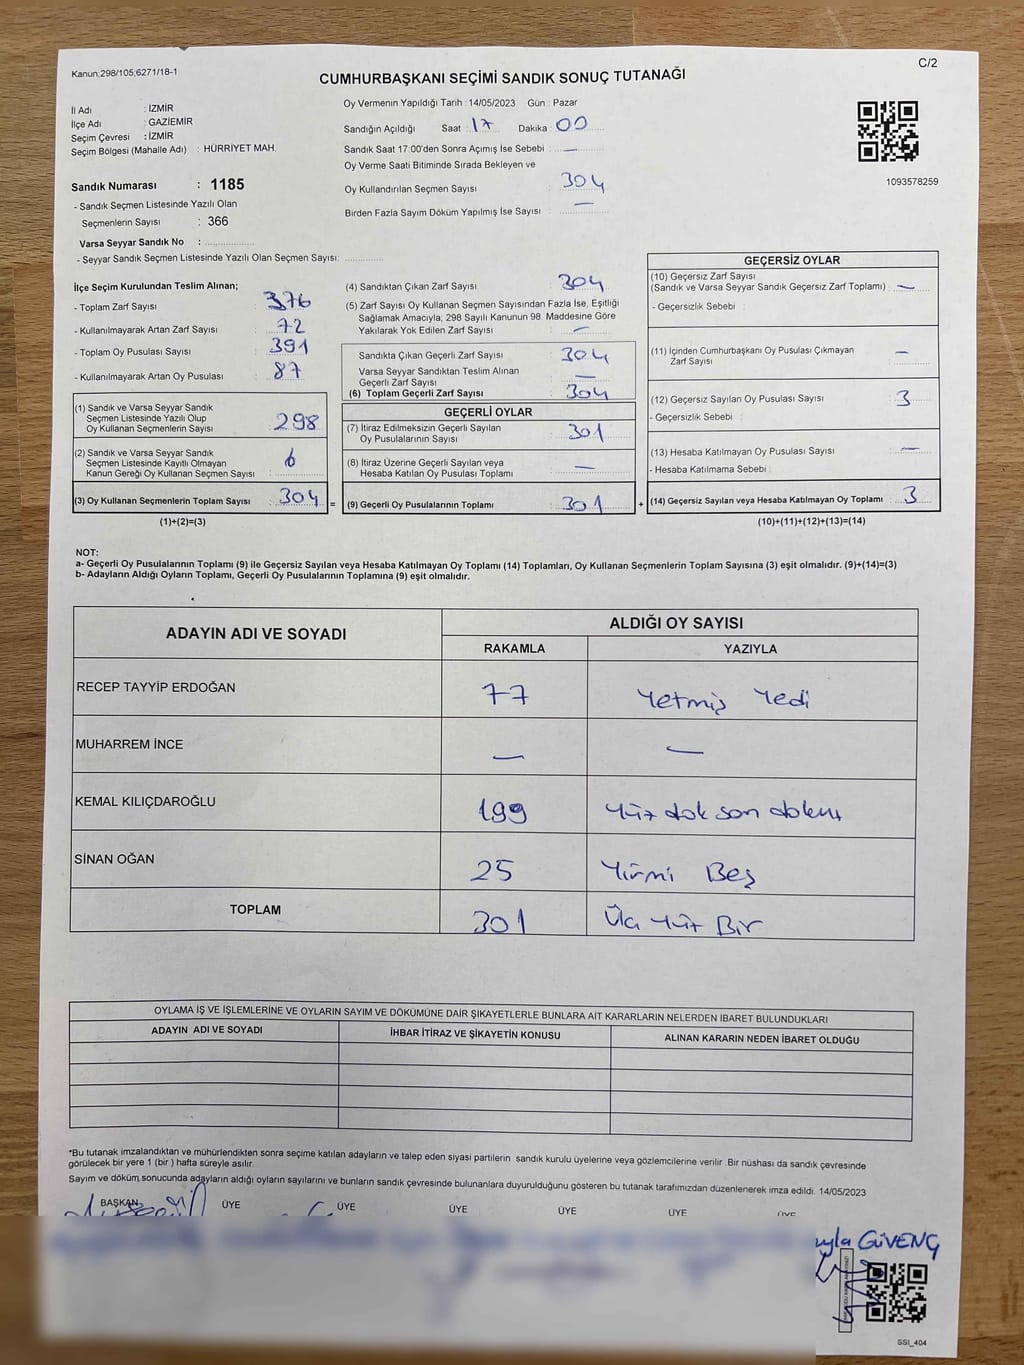 Kanun;298/105;6271/18-1
C/2
CUMHURBAŞKANI SEÇİMİ SANDIK SONUÇ TUTANAĞI
İl Adı : İZMİR
İlçe Adı : GAZİEMİR
Seçim Çevresi : İZMİR
Seçim Bölgesi (Mahalle Adı) : HÜRRİYET MAH.
Sandık Numarası : 1185
- Sandık Seçmen Listesinde Yazılı Olan
Seçmenlerin Sayısı : 366
Varsa Seyyar Sandık No :
- Seyyar Sandık Seçmen Listesinde Yazılı Olan Seçmen Sayısı:
Oy Vermenin Yapıldığı Tarih : 14/05/2023 Gün : Pazar
Sandığın Açıldığı Saat 17 Dakika : 00
Sandık Saat 17:00'den Sonra Açımış İse Sebebi : —
Oy Verme Saati Bitiminde Sırada Bekleyen ve
Oy Kullandırılan Seçmen Sayısı 304
Birden Fazla Sayım Döküm Yapılmış İse Sayısı : —
1093578259
İlçe Seçim Kurulundan Teslim Alınan;
- Toplam Zarf Sayısı 376
- Kullanılmayarak Artan Zarf Sayısı 72
- Toplam Oy Pusulası Sayısı 391
- Kullanılmayarak Artan Oy Pusulası 87
(1) Sandık ve Varsa Seyyar Sandık
Seçmen Listesinde Yazılı Olup
Oy Kullanan Seçmenlerin Sayısı 298
(2) Sandık ve Varsa Seyyar Sandık
Seçmen Listesinde Kayıtlı Olmayan
Kanun Gereği Oy Kullanan Seçmen Sayısı 6
(3) Oy Kullanan Seçmenlerin Toplam Sayısı 304 =
(1)+(2)=(3)
(4) Sandıktan Çıkan Zarf Sayısı 304
(5) Zarf Sayısı Oy Kullanan Seçmen Sayısından Fazla İse, Eşitliği
Sağlamak Amacıyla; 298 Sayılı Kanunun 98. Maddesine Göre
Yakılarak Yok Edilen Zarf Sayısı —
Sandıkta Çıkan Geçerli Zarf Sayısı 304
Varsa Seyyar Sandıktan Teslim Alınan
Geçerli Zarf Sayısı —
(6) Toplam Geçerli Zarf Sayısı 304
GEÇERLİ OYLAR
(7) İtiraz Edilmeksizin Geçerli Sayılan
Oy Pusulalarının Sayısı 301
(8) İtiraz Üzerine Geçerli Sayılan veya
Hesaba Katılan Oy Pusulası Toplamı —
(9) Geçerli Oy Pusulalarının Toplamı 301 +
GEÇERSİZ OYLAR
(10) Geçersiz Zarf Sayısı
(Sandık ve Varsa Seyyar Sandık Geçersiz Zarf Toplamı) —
- Geçersizlik Sebebi :
(11) İçinden Cumhurbaşkanı Oy Pusulası Çıkmayan
Zarf Sayısı —
(12) Geçersiz Sayılan Oy Pusulası Sayısı 3
- Geçersizlik Sebebi :
(13) Hesaba Katılmayan Oy Pusulası Sayısı —
- Hesaba Katılmama Sebebi :
(14) Geçersiz Sayılan veya Hesaba Katılmayan Oy Toplamı 3
(10)+(11)+(12)+(13)=(14)
NOT:
a- Geçerli Oy Pusulalarının Toplamı (9) ile Geçersiz Sayılan veya Hesaba Katılmayan Oy Toplamı (14) Toplamları, Oy Kullanan Seçmenlerin Toplam Sayısına (3) eşit olmalıdır. (9)+(14)=(3)
b- Adayların Aldığı Oyların Toplamı, Geçerli Oy Pusulalarının Toplamına (9) eşit olmalıdır.
ADAYIN ADI VE SOYADI
ALDIĞI OY SAYISI
RAKAMLA YAZIYLA
RECEP TAYYİP ERDOĞAN 77 Yetmiş Yedi
MUHARREM İNCE — —
KEMAL KILIÇDAROĞLU 199 Yüz dok son dokuz
SİNAN OĞAN 25 Yirmi Beş
TOPLAM 301 Üç Yüz Bir
OYLAMA İŞ VE İŞLEMLERİNE VE OYLARIN SAYIM VE DÖKÜMÜNE DAİR ŞİKAYETLERLE BUNLARA AİT KARARLARIN NELERDEN İBARET BULUNDUKLARI
ADAYIN ADI VE SOYADI İHBAR İTİRAZ VE ŞİKAYETİN KONUSU ALINAN KARARIN NEDEN İBARET OLDUĞU
*Bu tutanak imzalandıktan ve mühürlendikten sonra seçime katılan adayların ve talep eden siyasi partilerin sandık kurulu üyelerine veya gözlemcilerine verilir .Bir nüshası da sandık çevresinde
görülecek bir yere 1 (bir ) hafta süreyle asılır.
Sayım ve döküm sonucunda adayların aldığı oyların sayılarını ve bunların sandık çevresinde bulunanlara duyurulduğunu gösteren bu tutanak tarafımızdan düzenlenerek imza edildi. 14/05/2023
BAŞKAN ÜYE ÜYE ÜYE ÜYE ÜYE ÜYE
GÜVENÇ
SSİ_404